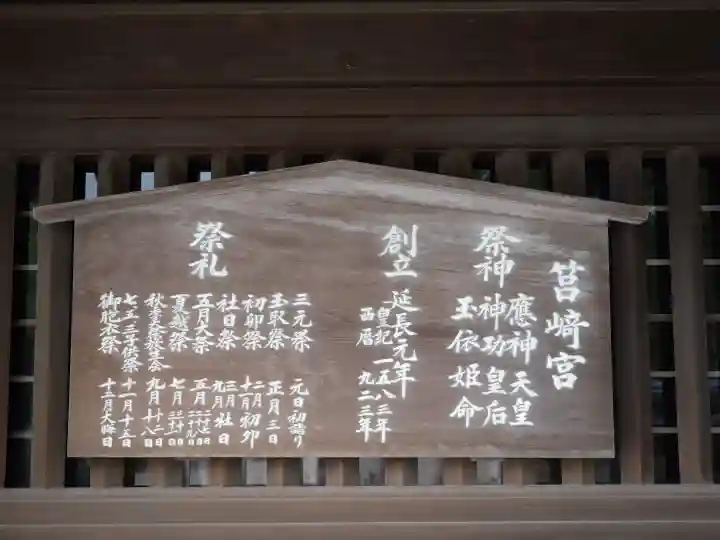 筥崎宮
祭神
應神天皇
神功皇后
玉依姫命
創立
延長元年
皇紀 一五八三年
西暦 九二三年
祭礼
三元祭 元日初詣り
玉取祭 正月三日
初卯祭 二月初卯
十一月
社日祭 三月社日
九月
五月大祭 五月
夏越祭 七月
秋季大祭放生会 九月
七五三子供祭 十一月十五日
御胞衣祭 十二月大晦日